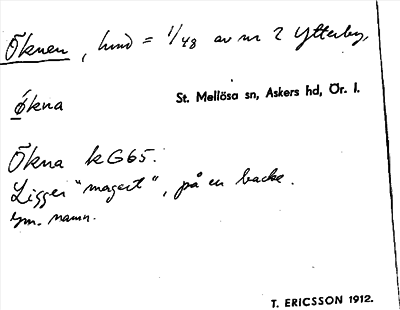 Öknen, hmd = 1/48 av nr 2 Ytterby,
ökna
St. Mellösa sn, Askers hd, Ör. l.
Ökna kG65.
Ligger "magert", på en backe.
namn.
T. ERICSSON 1912.